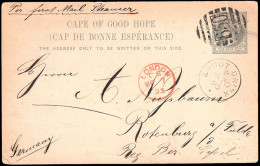 Per first Mail Steamer
CAPE OF GOOD HOPE
(CAP DE BONNE ESPÉRANCE)
THE ADDRESS ONLY TO BE WRITTEN ON THIS SIDE.
Herrn
A. Nussbaum
LONDON
Rotenburg a/ Fulda
Reg. Bez. Cassel
Germany